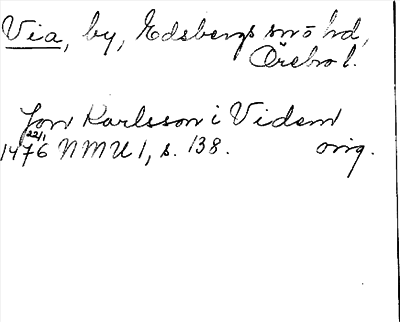 Via, by, Edsbergs sn o hd,
Örebro l.
Jon Karlsson i Videm
22/1
1476 NMU 1, s. 138. orig.